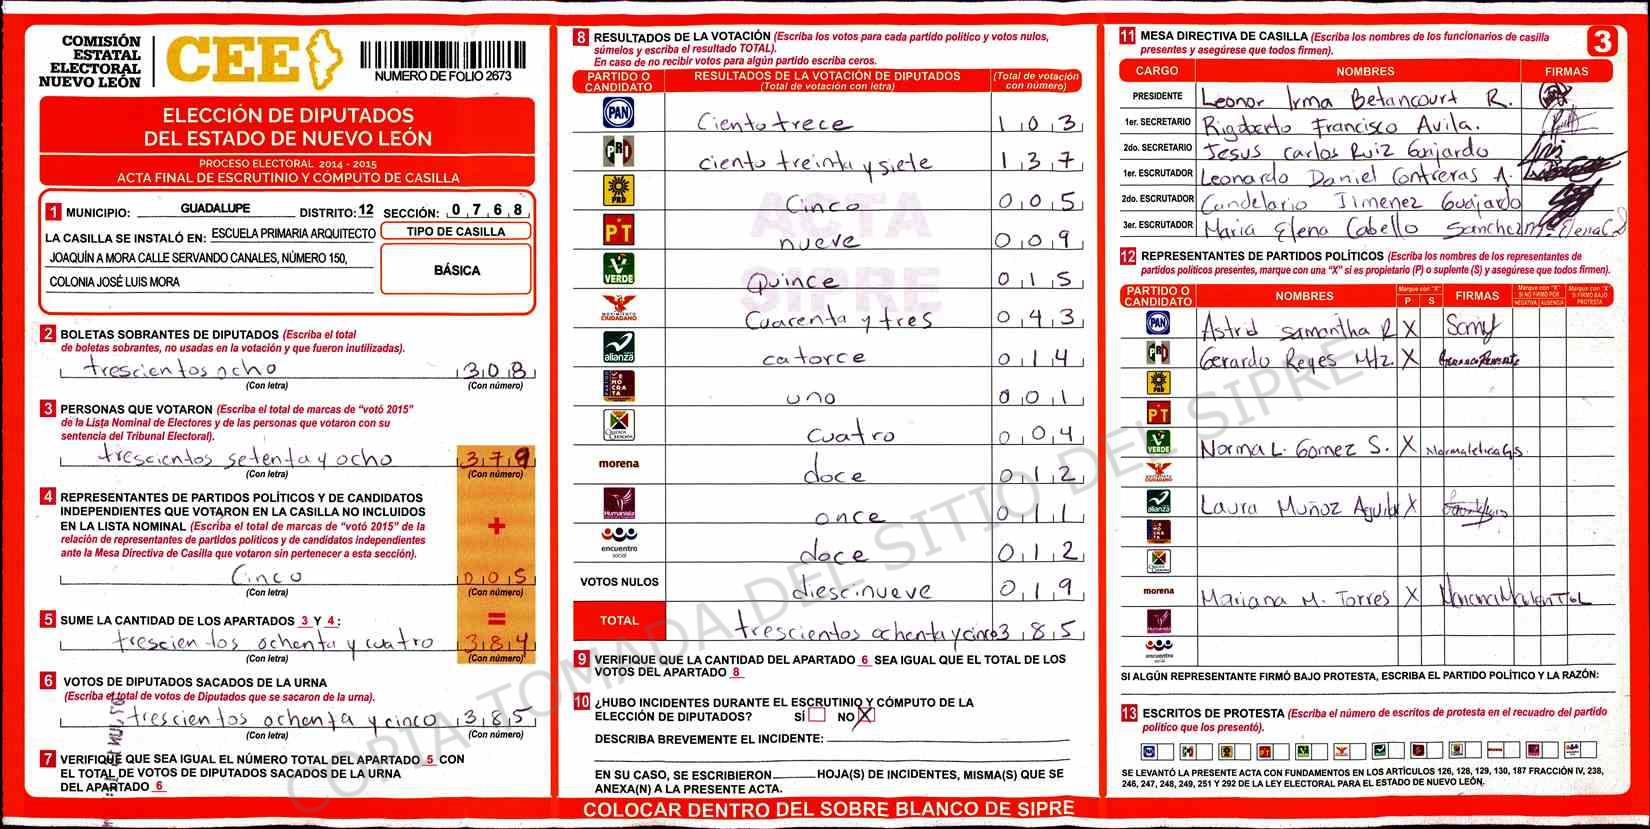 COMISIÓN
ESTATAL
ELECTORAL
NUEVO LEÓN
CEE
NUMERO DE FOLIO 2673
ELECCIÓN DE DIPUTADOS
DEL ESTADO DE NUEVO LEÓN
PROCESO ELECTORAL 2014 - 2015
ACTA FINAL DE ESCRUTINIO Y CÓMPUTO DE CASILLA
1 MUNICIPIO: GUADALUPE DISTRITO: 12 SECCIÓN: 0 7 6 8
LA CASILLA SE INSTALÓ EN: ESCUELA PRIMARIA ARQUITECTO
JOAQUÍN A MORA CALLE SERVANDO CANALES, NÚMERO 150,
COLONIA JOSÉ LUIS MORA
TIPO DE CASILLA
BÁSICA
2 BOLETAS SOBRANTES DE DIPUTADOS (Escriba el total
de boletas sobrantes, no usadas en la votación y que fueron inutilizadas).
trescientos ocho 3 0 8
(Con letra) (Con número)
3 PERSONAS QUE VOTARON (Escriba el total de marcas de "votó 2015"
de la Lista Nominal de Electores y de las personas que votaron con su
sentencia del Tribunal Electoral).
trescientos setenta y ocho 3 7 9
(Con letra) (Con número)
4 REPRESENTANTES DE PARTIDOS POLÍTICOS Y DE CANDIDATOS
INDEPENDIENTES QUE VOTARON EN LA CASILLA NO INCLUIDOS
EN LA LISTA NOMINAL (Escriba el total de marcas de "votó 2015" de la
relación de representantes de partidos políticos y de candidatos independientes
ante la Mesa Directiva de Casilla que votaron sin pertenecer a esta sección).
+
Cinco 0 0 5
(Con letra) (Con número)
5 SUME LA CANTIDAD DE LOS APARTADOS 3 Y 4:
=
trescientos ochenta y cuatro 3 8 4
(Con letra) (Con número)
6 VOTOS DE DIPUTADOS SACADOS DE LA URNA
(Escriba el total de votos de Diputados que se sacaron de la urna).
trescientos ochenta y cinco 3 8 5
(Con letra) (Con número)
7 VERIFIQUE QUE SEA IGUAL EL NÚMERO TOTAL DEL APARTADO 5 CON
EL TOTAL DE VOTOS DE DIPUTADOS SACADOS DE LA URNA
DEL APARTADO 6
8 RESULTADOS DE LA VOTACIÓN (Escriba los votos para cada partido político y votos nulos,
súmelos y escriba el resultado TOTAL).
En caso de no recibir votos para algún partido escriba ceros.
PARTIDO O CANDIDATO RESULTADOS DE LA VOTACIÓN DE DIPUTADOS (Total de votación con letra) (Total de votación con número)
PAN Ciento trece 1 0 3
PRI ciento treinta y siete 1 3 7
PRD Cinco 0 0 5
PT nueve 0 0 9
VERDE Quince 0 1 5
MOVIMIENTO CIUDADANO Cuarenta y tres 0 4 3
alianza catorce 0 1 4
uno 0 0 1
cuatro 0 0 4
morena doce 0 1 2
Humanista once 0 1 1
encuentro social doce 0 1 2
VOTOS NULOS diescinueve 0 1 9
TOTAL trescientos ochenta y cinco 3 8 5
ACTA
SIPRE
9 VERIFIQUE QUE LA CANTIDAD DEL APARTADO 6 SEA IGUAL QUE EL TOTAL DE LOS
VOTOS DEL APARTADO 8
10 ¿HUBO INCIDENTES DURANTE EL ESCRUTINIO Y CÓMPUTO DE LA
ELECCIÓN DE DIPUTADOS? SÍ NO X
DESCRIBA BREVEMENTE EL INCIDENTE:
EN SU CASO, SE ESCRIBIERON HOJA(S) DE INCIDENTES, MISMA(S) QUE SE
ANEXA(N) A LA PRESENTE ACTA.
COLOCAR DENTRO DEL SOBRE BLANCO DE SIPRE
11 MESA DIRECTIVA DE CASILLA (Escriba los nombres de los funcionarios de casilla
presentes y asegúrese que todos firmen).
3
CARGO NOMBRES FIRMAS
PRESIDENTE Leonor Irma Betancourt R.
1er. SECRETARIO Rigoberto Francisco Avila.
2do. SECRETARIO Jesus Carlos Ruiz Guajardo
1er. ESCRUTADOR Leonardo Daniel Contreras A.
2do. ESCRUTADOR Candelario Jimenez Guajardo
3er. ESCRUTADOR Maria Elena Cabello Sanchez
12 REPRESENTANTES DE PARTIDOS POLÍTICOS (Escriba los nombres de los representantes de
partidos políticos presentes, marque con una "X" si es propietario (P) o suplente (S) y asegúrese que todos firmen).
PARTIDO O CANDIDATO NOMBRES Marque con "X" P S FIRMAS Marque con "X" SI NO FIRMÓ POR NEGATIVA AUSENCIA Marque con "X" SI FIRMÓ BAJO PROTESTA
PAN Astrid Samantha R X
PRI Gerardo Reyes Mtz. X
PRD
PT
VERDE Norma L. Gomez S. X
alianza Laura Muñoz Aguilar X
morena Mariana M. Torres X
Humanista
encuentro social
SI ALGÚN REPRESENTANTE FIRMÓ BAJO PROTESTA, ESCRIBA EL PARTIDO POLÍTICO Y LA RAZÓN:
13 ESCRITOS DE PROTESTA (Escriba el número de escritos de protesta en el recuadro del partido
político que los presentó).
SE LEVANTÓ LA PRESENTE ACTA CON FUNDAMENTOS EN LOS ARTÍCULOS 126, 128, 129, 130, 187 FRACCIÓN IV, 238,
246, 247, 248, 249, 251 Y 292 DE LA LEY ELECTORAL PARA EL ESTADO DE NUEVO LEÓN.
COPIA TOMADA DEL SITIO DEL SIPRE